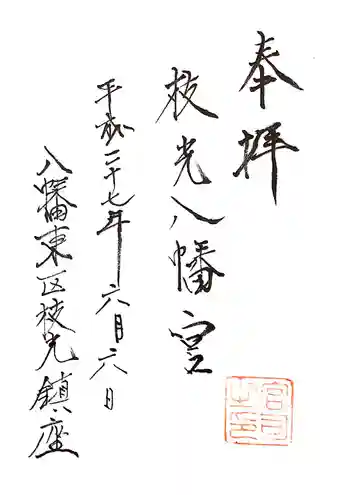 奉拝
枝光八幡宮
平成二十七年六月六日
八幡東区枝光鎮座
宮司之印